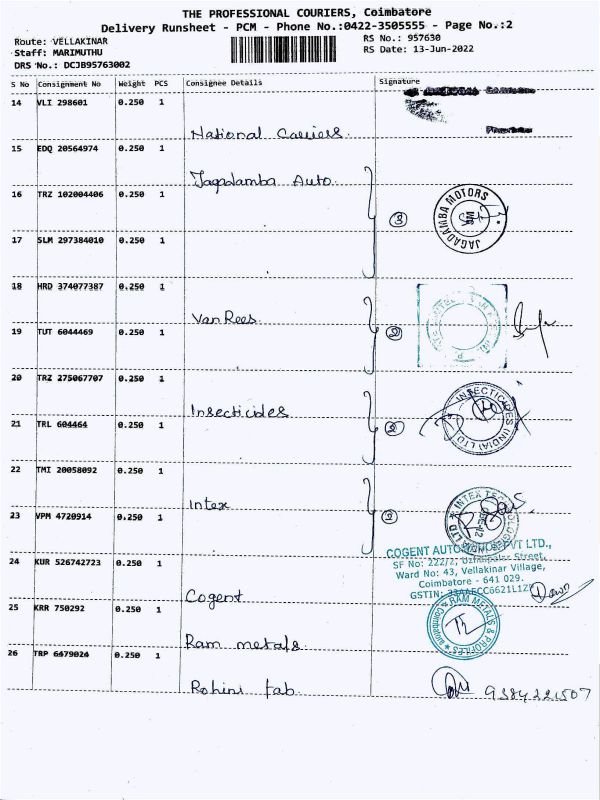 THE PROFESSIONAL COURIERS, Coimbatore
Delivery Runsheet - PCM - Phone No.:0422-3505555 - Page No.:2
Route: VELLAKINAR
RS No.: 957630
Staff: MARIMUTHU
RS Date: 13-Jun-2022
DRS No.: DCJB95763002
S No Consignment No Weight PCS Consignee Details Signature
14 VLI 298601 0.250 1
National Carriers.
15 EDQ 20564974 0.250 1
Jagadamba Auto.
16 TRZ 102004406 0.250 1
3
JAGADAMBA MOTORS
17 SLM 297384010 0.250 1
18 HRD 374077387 0.250 1
Van Rees.
19 TUT 6044469 0.250 1
2
20 TRZ 275067707 0.250 1
Insecticides
INSECTICIDES (INDIA) LTD
21 TRL 604464 0.250 1
2
22 TMI 20058092 0.250 1
Intex
INTEX TECHNOLOGIES
23 VPM 4720914 0.250 1
COGENT AUTOMOTION PVT LTD.,
SF No: 222/2, Street,
24 KUR 526742723 0.250 1
Ward No: 43, Vellakinar Village,
Coimbatore - 641 029.
GSTIN:
Cogent
25 KRR 750292 0.250 1
RAM METALS & PROFILES
Coimbatore
Ram metals.
26 TRP 6479024 0.250 1
Rohini fab
9384221507